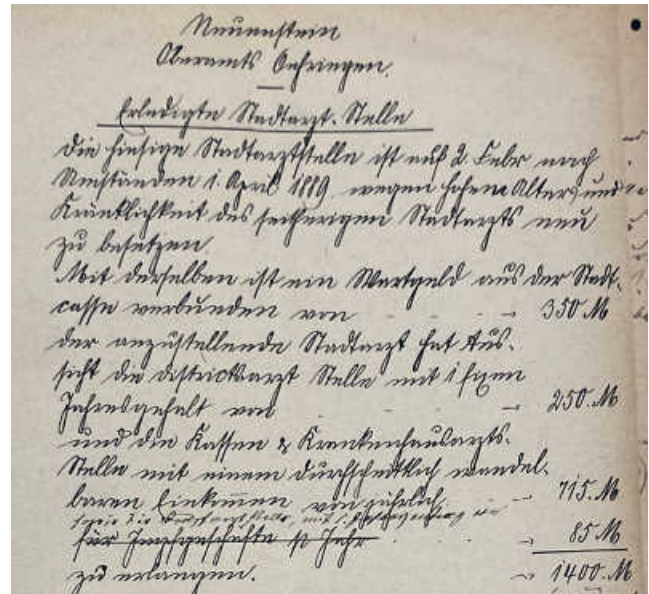 Neuenstein
Oberamts Oehringen.
Erledigte Stadtarzt-Stelle
Die hiesige Stadtarztstelle ist auf 2. Febr nach
Umständen 1. April 1889 wegen hohen Alters und
Kränklichkeit des seitherigen Stadtarzts neu
zu besetzen
Mit derselben ist ein Wartgeld aus der Stadt-
casse verbunden von - - - 350 M
der anzustellende Stadtarzt hat Aus-
sicht die districtsarzt Stelle mit 1 fixen
Jahresgehalt von - - - 250. M
und die Kassen & Krankenhausarzts-
Stelle mit einem durchschnittlich wandel-
baren Einkommen von jährlich - 715. M
sowie die Impfarztstelle, mit
für Impfgeschäfte p Jahr - 85 M
zu erlangen. - 1400. M